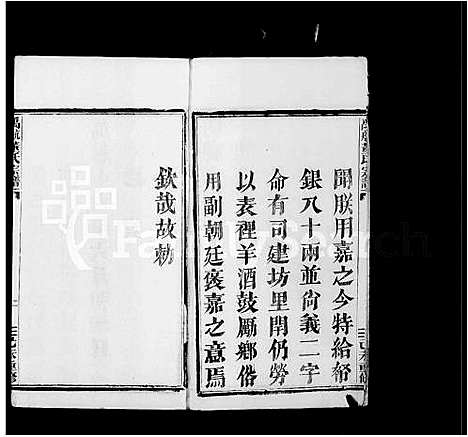 聞朕用嘉之今特給帑
銀八十兩並尚義二字
命有司建坊里閈仍勞
以表裡羊酒鼓勵鄉俗
用副朝廷褒嘉之意焉
欽哉故勅
禹航黃氏宗譜
FamilySearch